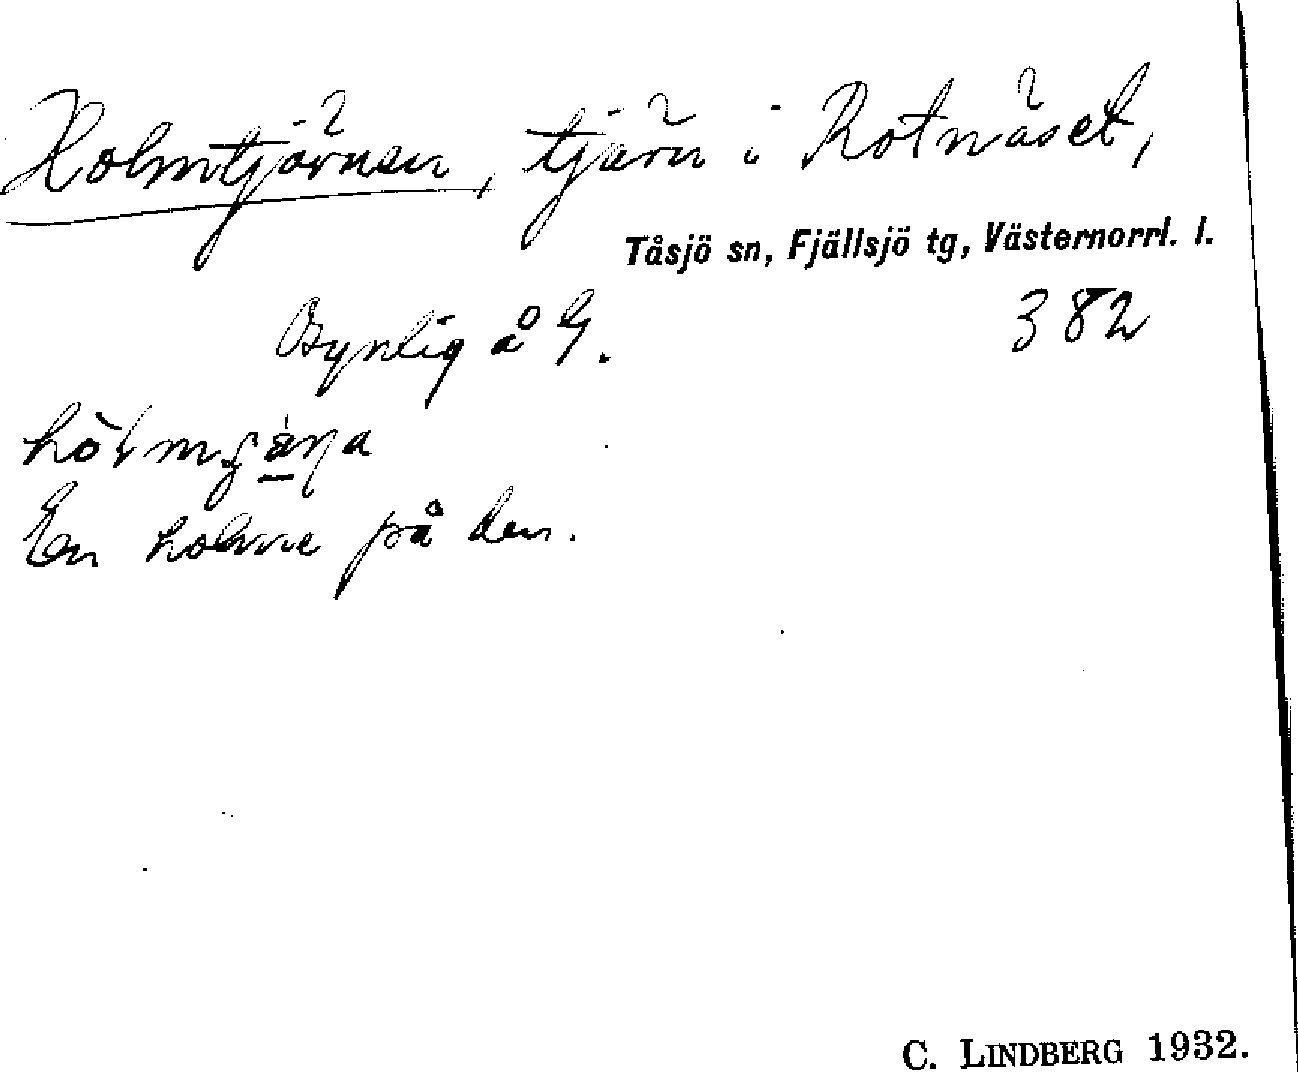 Holmtjärnen, tjärn i Rotnäset,
Tåsjö sn, Fjällsjö tg, Västernorrl. l.
Osynlig å G. 382
En holme på den.
C. LINDBERG 1932.